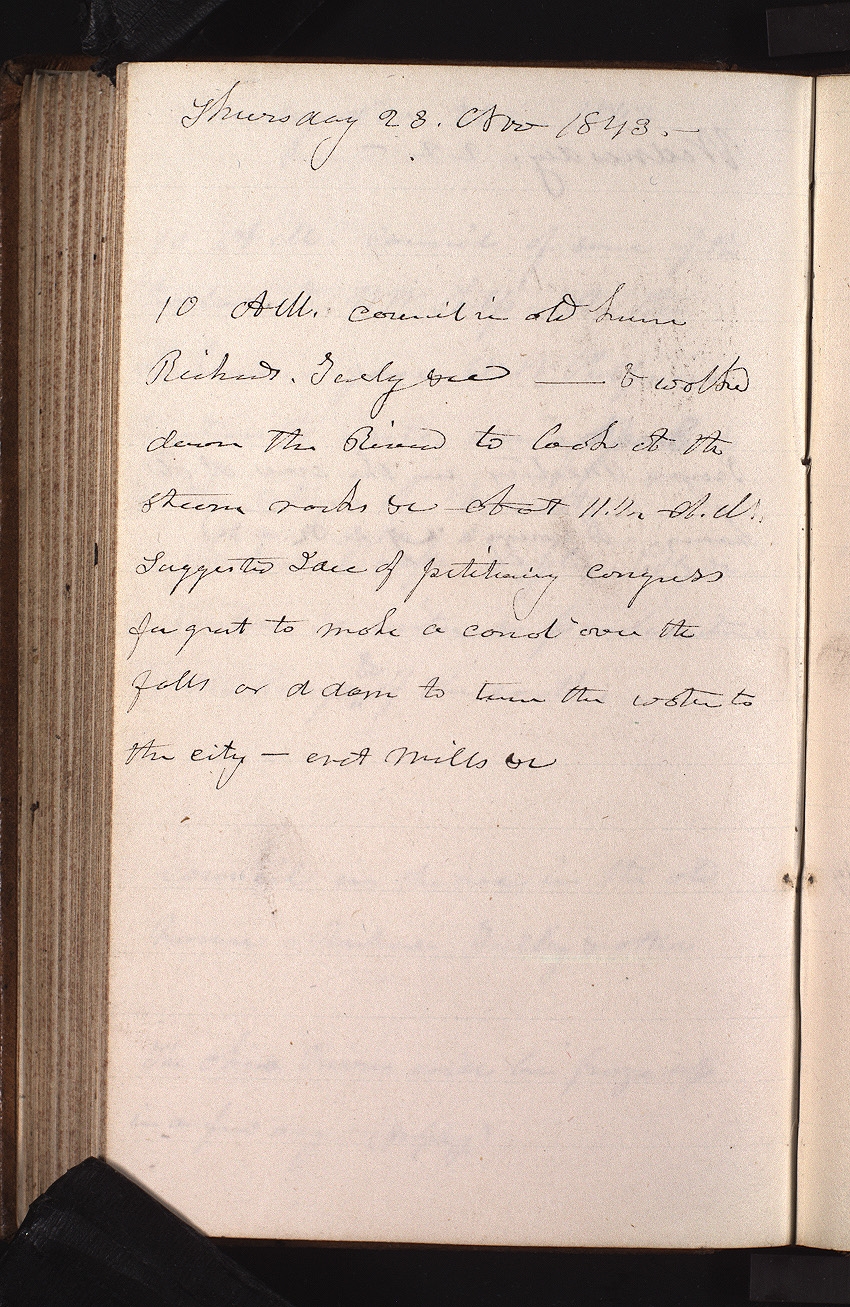 Thursday 23. Nov 1843.—
10 A.M. council in old house
Richards. Tayly &c — & walked
down the River to look at the
steam works &c about 11. A.M.
Suggested Idea of petitioning congress
for grant to make a canal over the
falls or a dam to turn the water to
the city — erect mills &c